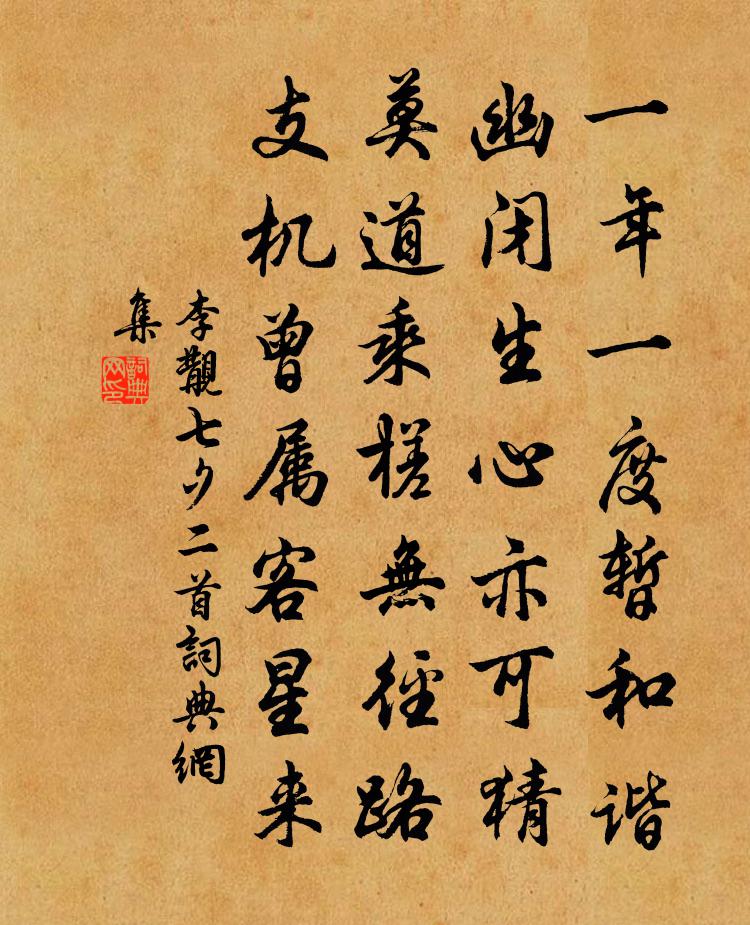 一年一度暫和谐
幽闭生心亦可猜
莫道乘槎無徑路
支机曾属客星来
李觀七夕二首詞典網
集
詞典网印